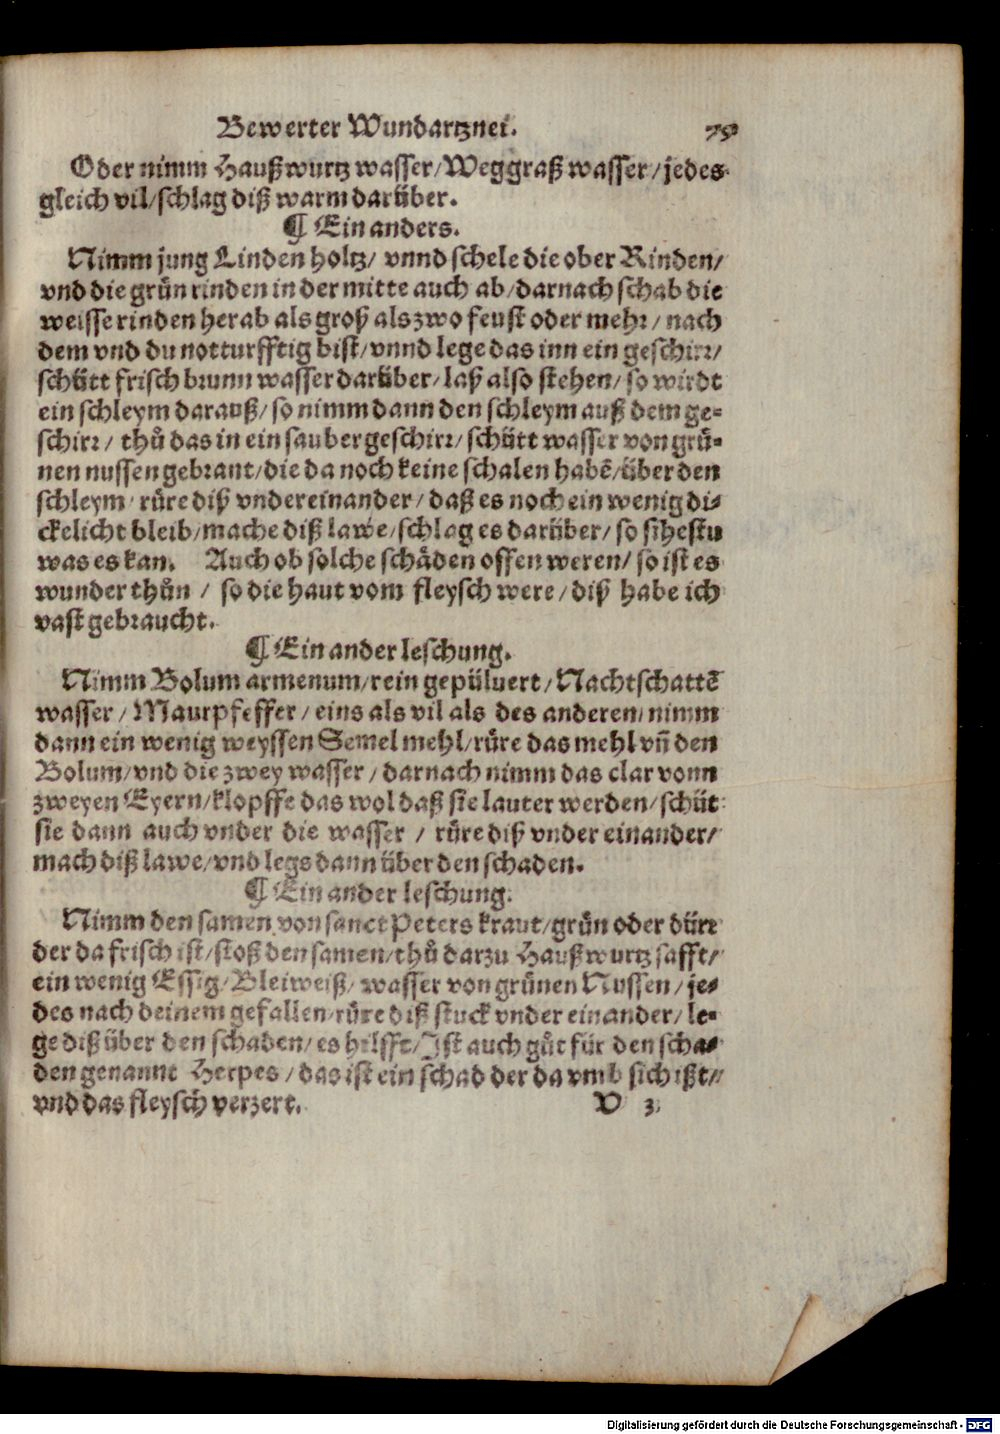 Bewerter Wundartznei. 79
Oder nimm Haußwurtz wasser/Weggraß wasser/jedes
gleich vil/schlag diß warm darüber.
¶ Ein anders.
Nimm jung Linden holtz/ vnnd schele die ober Rinden/
vnd die grün rinden in der mitte auch ab/darnach schab die
weisse rinden herab als groß als zwo feust oder mehr/nach
dem vnd du notturfftig bist/vnnd lege das inn ein geschirr/
schütt frisch brunn wasser darüber/laß also stehen/so wirdt
ein schleym darauß/so nimm dann den schleym auß dem ge-
schirr/ thů das in ein sauber geschirr/schütt wasser von grü-
nen nussen gebrant/die da noch keine schalen habē/über den
schleym/rüre diß vndereinander/daß es noch ein wenig di-
ckelicht bleib/mache diß lawe/schlag es darüber/so sihestu
was es kan. Auch ob solche schäden offen weren/so ist es
wunder thůn / so die haut vom fleysch were/diß habe ich
vast gebraucht.
¶ Ein ander leschung.
Nimm Bolum armenum/rein gepüluert/Nachtschattē
wasser/Maurpfeffer/eins als vil als des anderen/nimm
dann ein wenig weyssen Semel mehl/rüre das mehl vn̄ den
Bolum/vnd die zwey wasser/darnach nimm das clar vonn
zweyen Eyern/klopffe das wol daß sie lauter werden/schüt
sie dann auch vnder die wasser / rüre diß vnder einander/
mach diß lawe/vnd legs dann über den schaden.
¶ Ein ander leschung.
Nimm den samen von sanct Peters kraut/grün oder dürr
der da frisch ist/stoß den samen/thů darzu Haußwurtz safft/
ein wenig Essig/Bleiweiß/wasser von grünen Nussen/je-
des nach deinem gefallen/rüre diß stuck vnder einander/le-
ge diß über den schaden/es hilfft/Ist auch gůt für den scha-
den genannt Herpes/das ist ein schad der da vmb sich ißt/
vnd das fleysch verzert. V 3
Digitalisierung gefördert durch die Deutsche Forschungsgemeinschaft - DFG